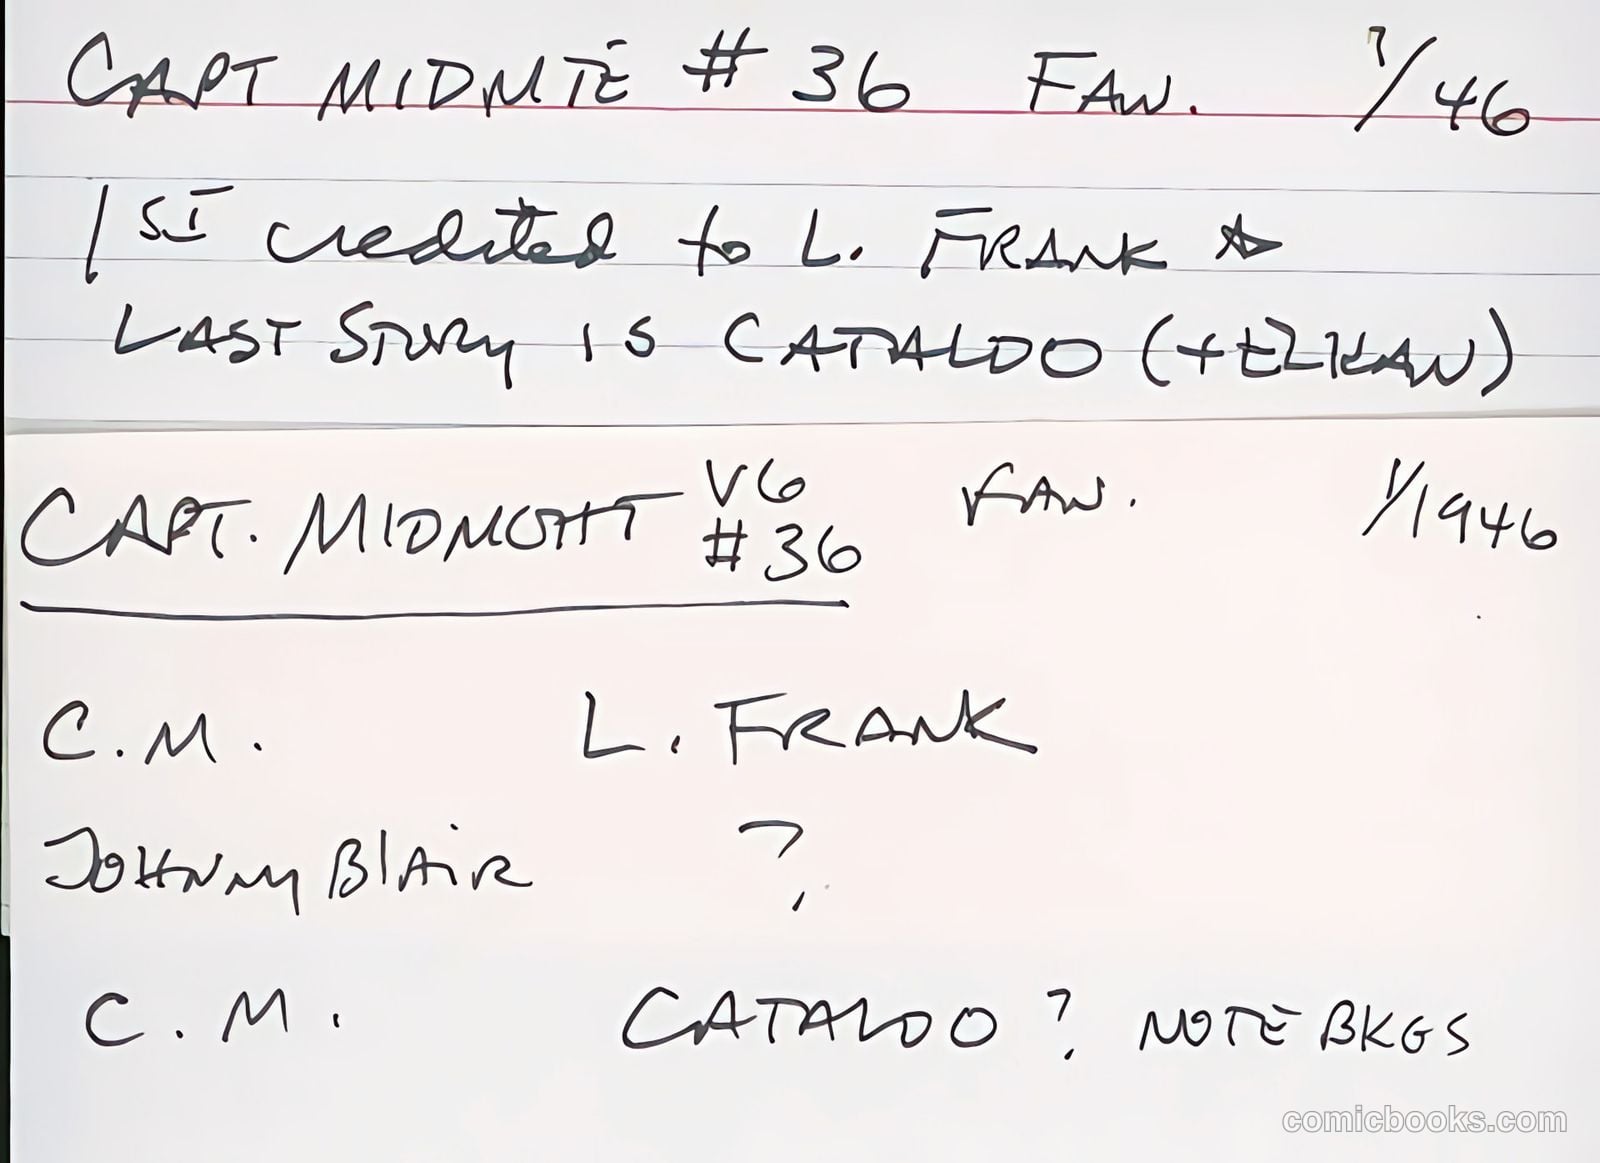 CAPT MIDNITE # 36 FAW. 1/46
1ST credited to L. FRANK ☆
LAST STORY IS CATALDO (+ ELIKAN)
CAPT. MIDNGHT V6 #36 FAW. 1/1946
C.M. L. FRANK
JOHNNY BLAIR ?
C.M. CATALDO ? NOTE BKGS
comicbooks.com